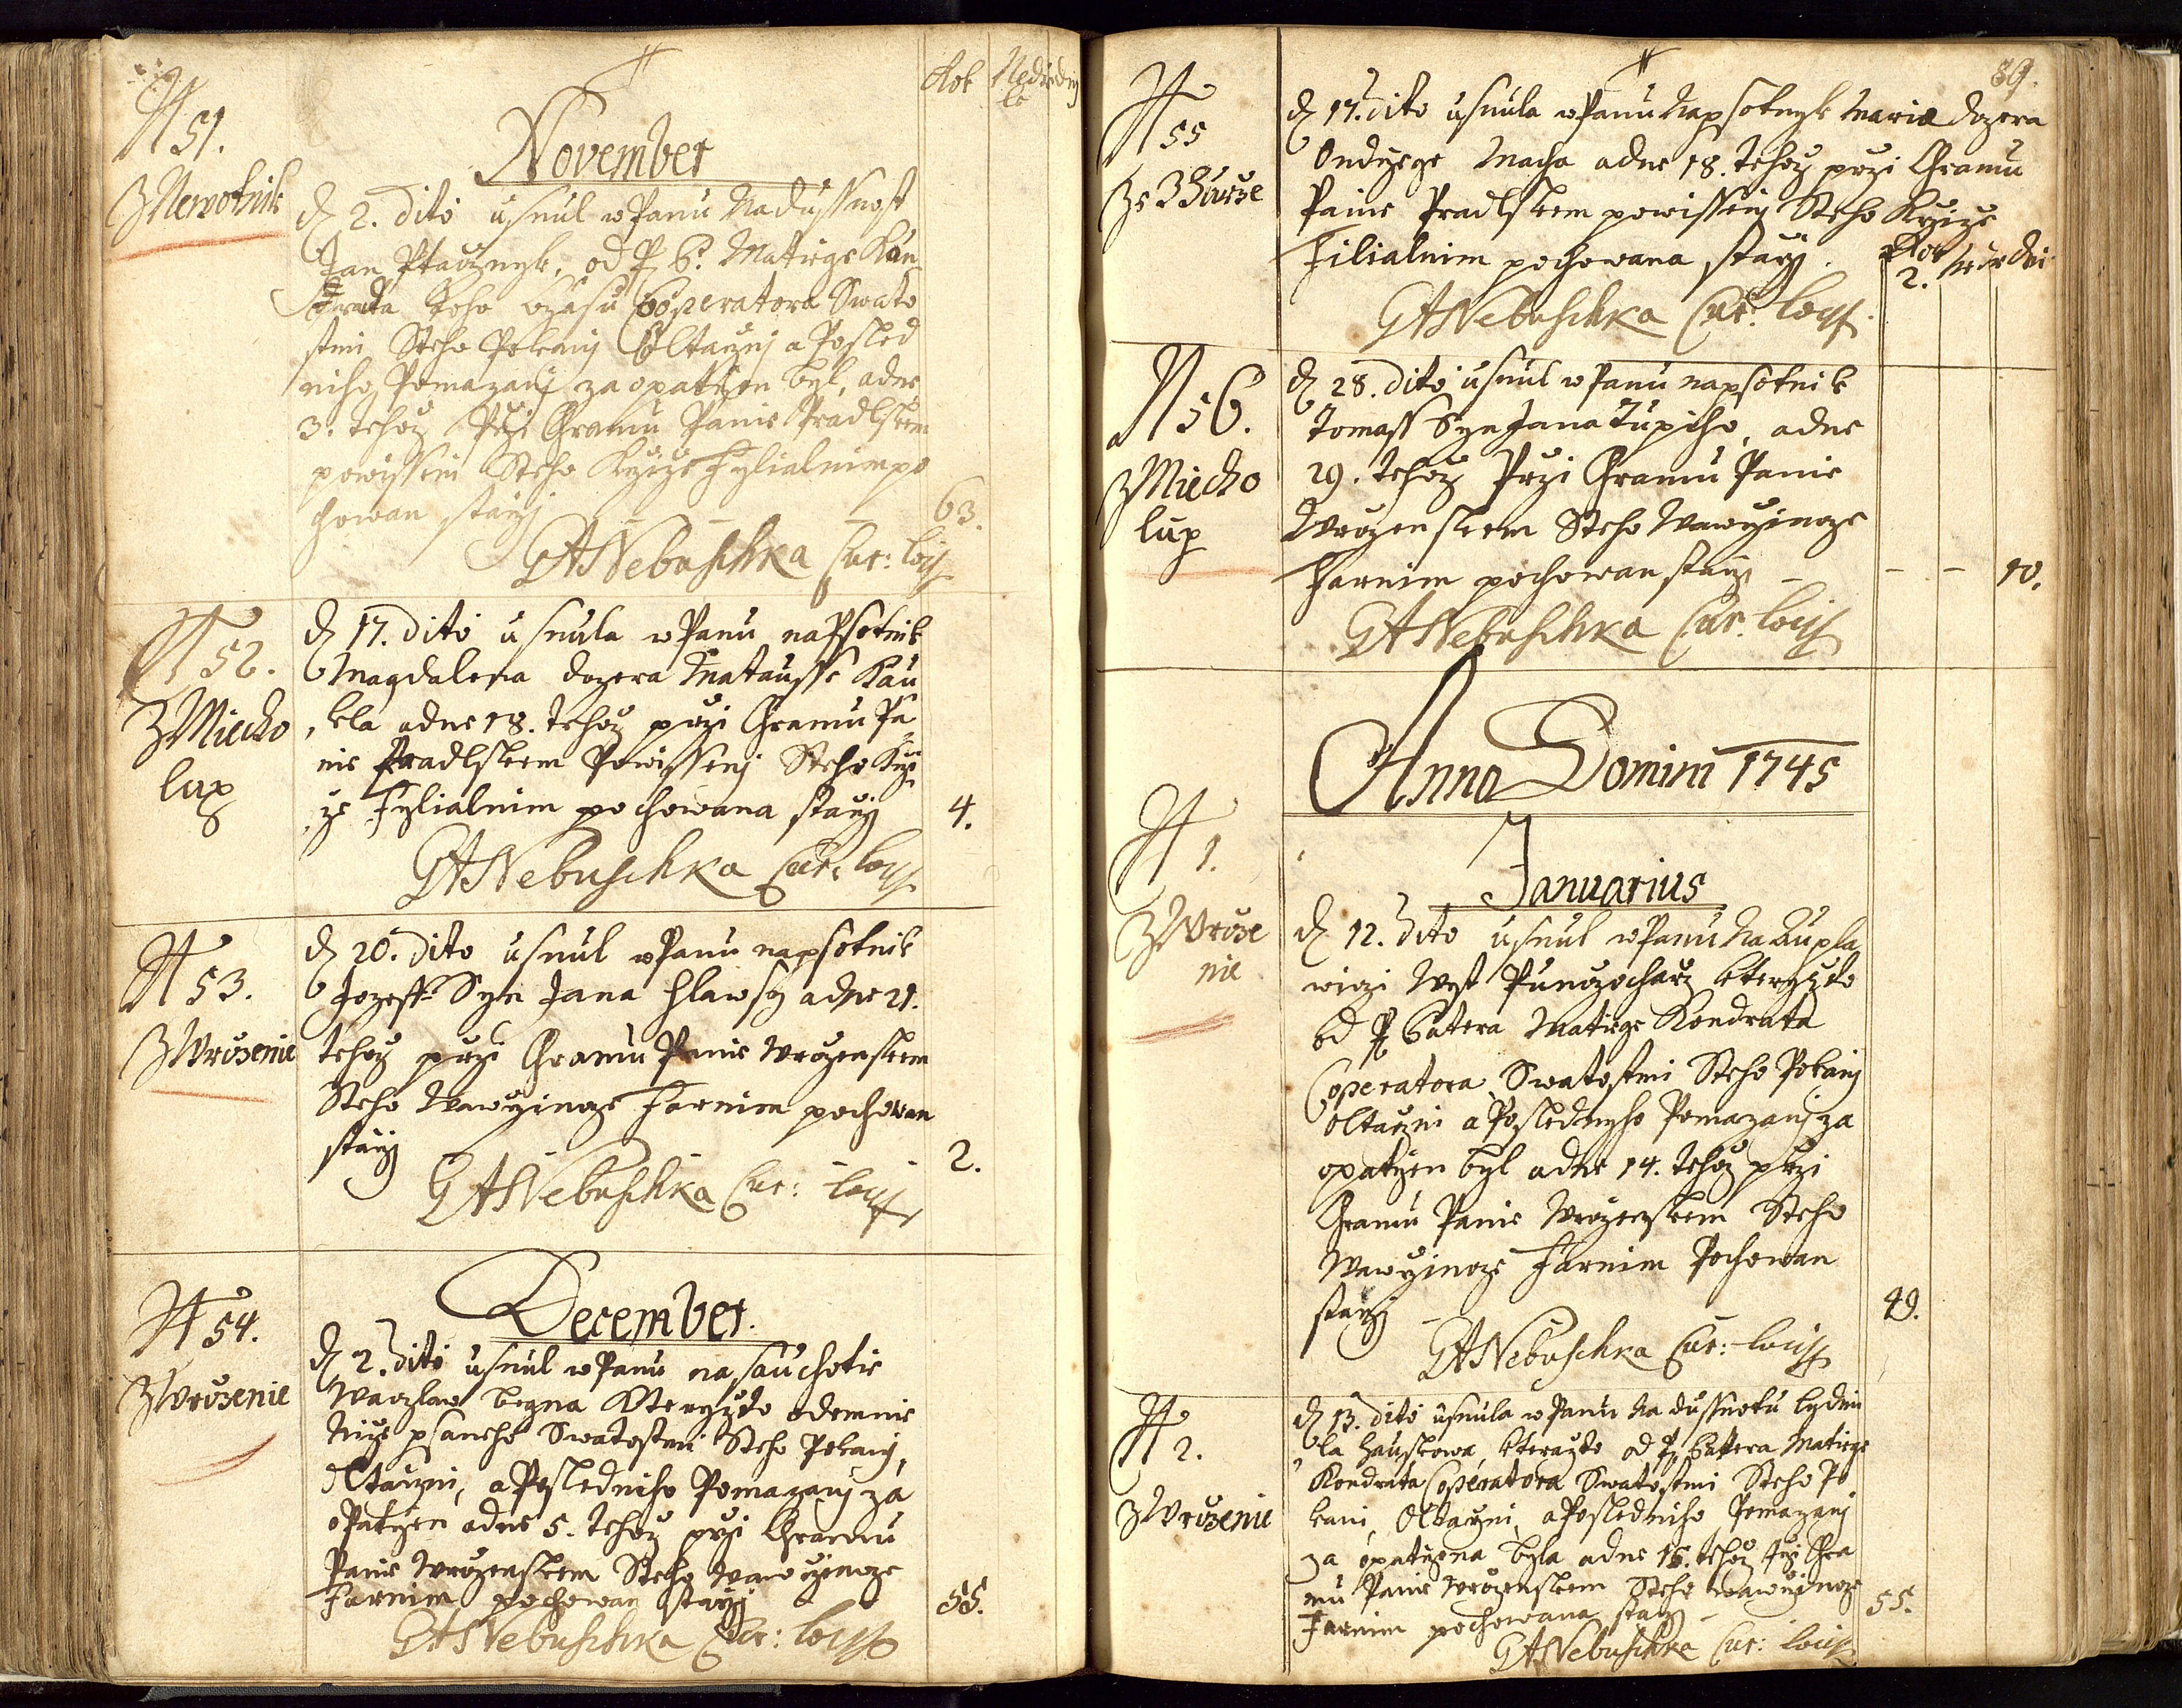 Rok Nedie dny
le
N 51.
Z Nerwotnik
November
D 2. dito usnul w Panu Na dussnost
Jan Ptacznyk, od P. P. Matiege Kon
drata toho cžasu Cooperatora Swato
stmi Steho Pokanj Oltaržnj a Posled
niho Pomazanj za opatržen byl, adne
3. tehož Prži Chramu Panie Pradlskem
powisseni Steho Kržiže Fylialnim po
chowan starzj
63.
GANebuschka Cur: loci
N 52.
Z Miecho
lup
D 17. dito usnula w Panu na Psotnik
Magdalena dczera Matausse Kau
kla adne 18. tehož prži Chramu Pa
nie Pradlskem Powissenj Steho Krži
že Fylialnim pochowana starzj
4.
GANebuschka Cur: loci
N 53.
Z Wrozenie
D 20. dito usnul w Panu na psotnik
Jozeff Syn Jana Hlawsy adne 21.
tehož prži Chramu Panie Wrozenskem
Steho Wawržincze Farnim pochowan
starzj
2.
GANebuschka Cur: loci
December.
N 54.
Z Wrozenie
D 2. dito usnul w Panu na sauchotie
Waczlaw Begna Kteryžto odemnie
Niže psaneho Swatostmi Steho Pokanj,
Oltaržni, a Posledniho Pomazanj za
oPatržen adne 5. tehož prži Chramu
Panie Wrozenskem Steho Wawržincze
Farnim pochowan starzj
55.
GANebuschka Cur: loci
89.
N 55
Ze Zburze
D 17. dito usnula w Panu Na psotnyk Maria dczera
Ondržege Macha adne 18. tehož prži Chramu
Panie Pradlskem powissenj Steho Kržiže
Filialnim pochowana starzj.
Rok nedie dni
2.
GANebuschka Cur: loci
N 56.
Z Miecho
lup
D 28. dito usnul w Panu na psotnik
Tomass Syn Jana Tupiho, adne
29. tehož Prži Chramu Panie
Wrozenskem Steho Wawržincze
Farnim pochowan starzj
10.
GANebuschka Cur. loci
Anno Domini 1745
Januarius
N 1.
Z Wroze
nie
D 12. dito usnul w Panu Na Supla
wiczi Wyt Punczocharž kteryžto
od P. Patera Matiege Kondrata
Coperatora Swatostmi Steho Pokanj
Oltaržni a Poslednyho Pomazanj za
opatržen byl adne 14. tehož prži
Chramu Panie Wrozenskem Steho
Wawržincze Farnim Pochowan
starzj
49.
GANebuschka Cur: loci
N 2.
Z Wrozenie
D 13. dito usnula w Panu Na dussnotu Lydmi
la Hauskowa, kteražto od P. Pattera Matiege
Kondrata Coperatora Swatostmi Steho Po
kani, Oltaržni, a Posledniho Pomazanj
za opatržena byla adne 15. tehož Prži Chra
mu Panie Wrozenskem Steho Wawržincze
Farnim pochowana starzj
55.
GANebuschka Cur: loci